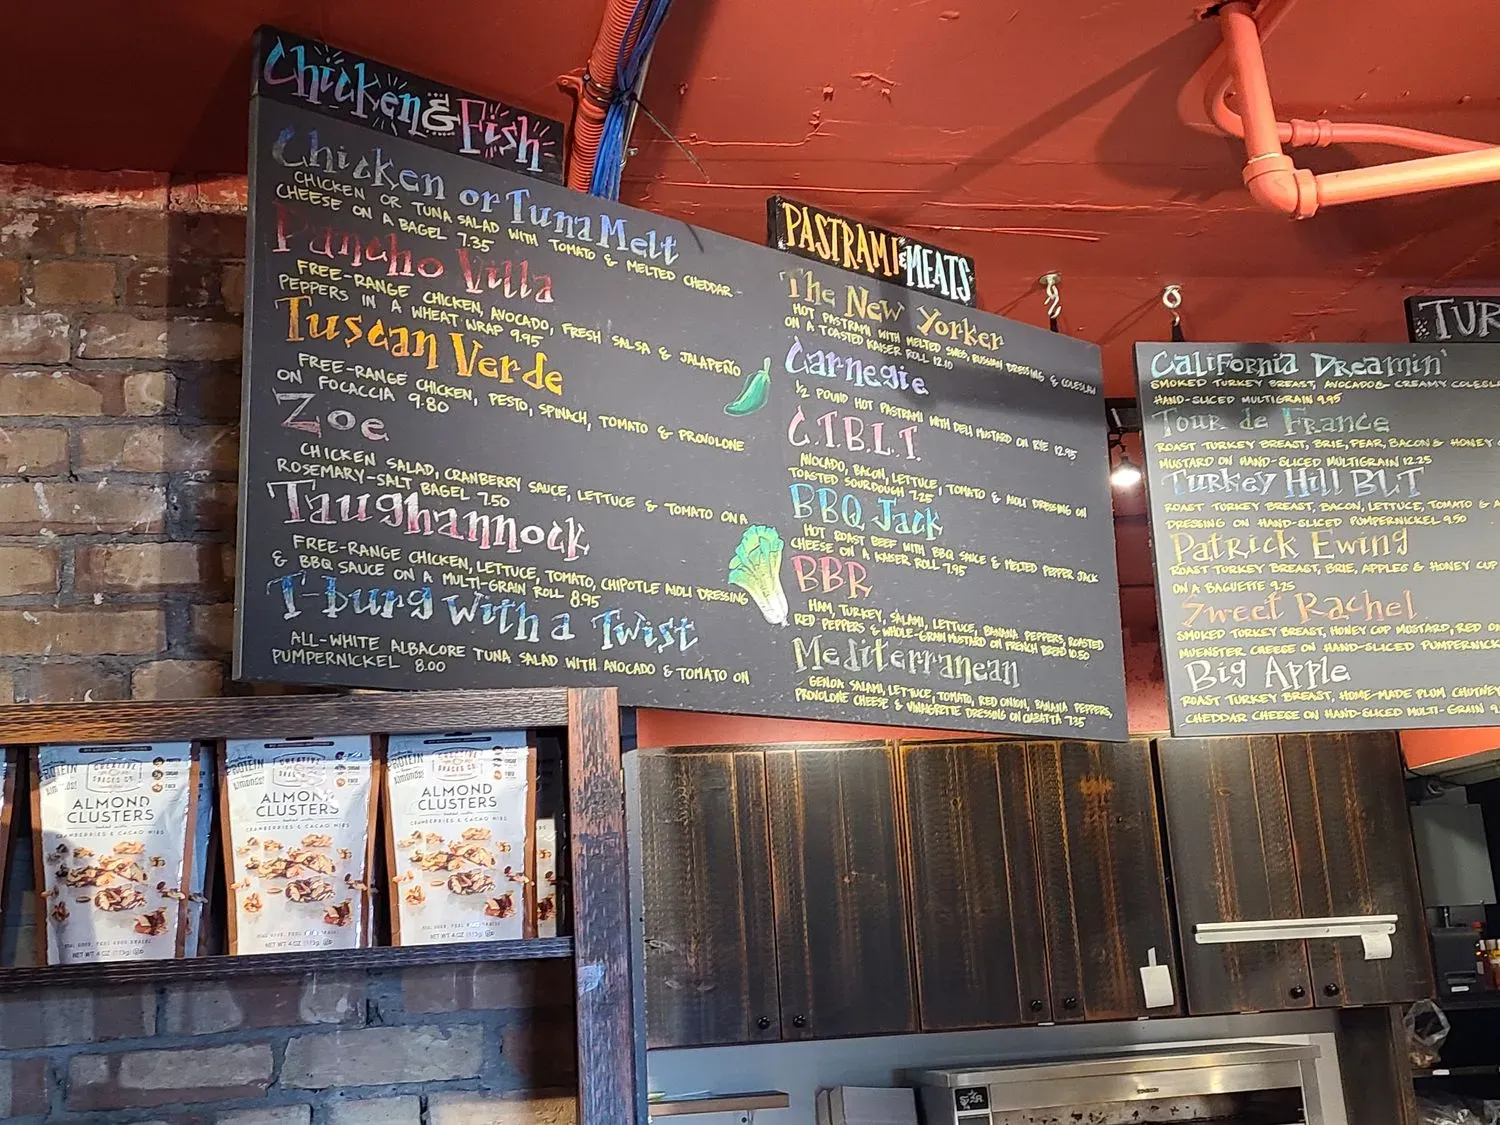 Chicken & Fish
Chicken or Tuna Melt
CHICKEN OR TUNA SALAD WITH TOMATO & MELTED CHEDDAR
CHEESE ON A BAGEL 7.35
Pancho Villa
FREE-RANGE CHICKEN, AVOCADO, FRESH SALSA & JALAPEÑO
PEPPERS IN A WHEAT WRAP 9.95
Tuscan Verde
FREE-RANGE CHICKEN, PESTO, SPINACH, TOMATO & PROVOLONE
ON FOCACCIA 9.80
Zoe
CHICKEN SALAD, CRANBERRY SAUCE, LETTUCE & TOMATO ON A
ROSEMARY-SALT BAGEL 7.50
Taughannock
FREE-RANGE CHICKEN, LETTUCE, TOMATO, CHIPOTLE AIOLI DRESSING
& BBQ SAUCE ON A MULTI-GRAIN ROLL 8.95
T-burg with a Twist
ALL-WHITE ALBACORE TUNA SALAD WITH AVOCADO & TOMATO ON
PUMPERNICKEL 8.00
PASTRAMI & MEATS
The New Yorker
HOT PASTRAMI WITH MELTED SWISS, RUSSIAN DRESSING & COLESLAW
ON A TOASTED KAISER ROLL 12.10
Carnegie
1/2 POUND HOT PASTRAMI WITH DELI MUSTARD ON RYE 12.95
C.T.B.L.T.
AVOCADO, BACON, LETTUCE, TOMATO & AIOLI DRESSING ON
TOASTED SOURDOUGH 7.25
BBQ Jack
HOT ROAST BEEF WITH BBQ SAUCE & MELTED PEPPER JACK
CHEESE ON A KAISER ROLL 7.95
BBR
HAM, TURKEY, SALAMI, LETTUCE, BANANA PEPPERS, ROASTED
RED PEPPERS & WHOLE-GRAIN MUSTARD ON FRENCH BREAD 10.50
Mediterranean
GENOA SALAMI, LETTUCE, TOMATO, RED ONION, BANANA PEPPERS,
PROVOLONE CHEESE & VINAIGRETTE DRESSING ON CIABATTA 7.35
TUR
California Dreamin'
SMOKED TURKEY BREAST, AVOCADO & CREAMY COLESLA
HAND-SLICED MULTIGRAIN 9.95
Tour de France
ROAST TURKEY BREAST, BRIE, PEAR, BACON & HONEY
MUSTARD ON HAND-SLICED MULTIGRAIN 12.25
Turkey Hill BLT
ROAST TURKEY BREAST, BACON, LETTUCE, TOMATO & A
DRESSING ON HAND-SLICED PUMPERNICKEL 9.50
Patrick Ewing
ROAST TURKEY BREAST, BRIE, APPLES & HONEY CUP
ON A BAGUETTE 9.25
Sweet Rachel
SMOKED TURKEY BREAST, HONEY CUP MUSTARD, RED ON
MUENSTER CHEESE ON HAND-SLICED PUMPERNICK
Big Apple
ROAST TURKEY BREAST, HOME-MADE PLUM CHUTNEY
CHEDDAR CHEESE ON HAND-SLICED MULTI-GRAIN 9.
PROTEIN
CREATIVE
SNACKS CO.
ALMOND
CLUSTERS
CRANBERRIES & CACAO NIBS
REAL GOOD. FEEL GOOD SNACKS.
NET WT 4 OZ (113g)
PROTEIN
CREATIVE
ALMOND
CLUSTERS
CRANBERRIES & CACAO NIBS
NET WT 4 OZ (113g)
CREATIVE
SNACKS CO.
ALMOND
CLUSTERS
CRANBERRIES & CACAO NIBS
NET WT 4 OZ (113g)
STAR